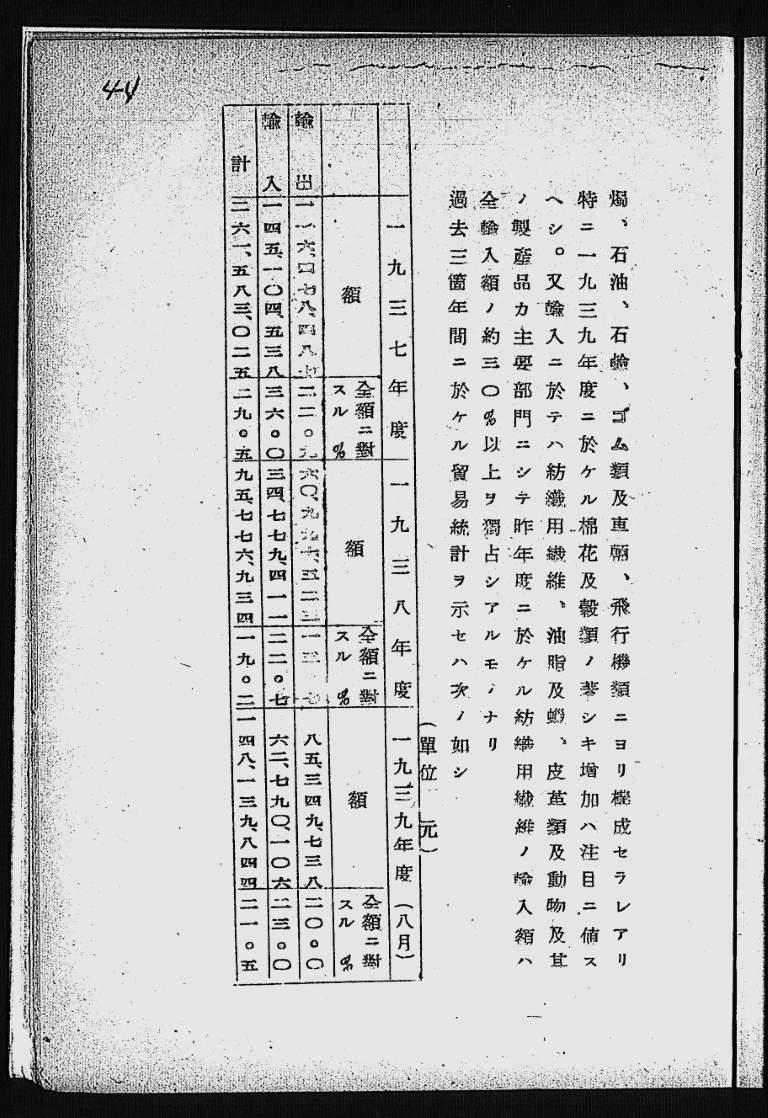 44
燭、石油、石鹼、ゴム類及車輛、飛行機類ニヨリ構成セラレアリ
特ニ一九三九年度ニ於ケル棉花及穀類ノ著シキ增加ハ注目ニ値ス
ヘシ。又輸入ニ於テハ紡織用纖維、油脂及蠟、皮革類及動物及其
ノ製產品カ主要部門ニシテ昨年度ニ於ケル紡織用纖維ノ輸入額ハ
全輸入額ノ約三〇%以上ヲ獨占シアルモノナリ
過去三箇年間ニ於ケル貿易統計ヲ示セハ次ノ如シ
(單位 元)
一九三七年度 一九三八年度 一九三九年度(八月)
額 全額ニ對スル% 額 全額ニ對スル% 額 全額ニ對スル%
輸出 一一六、四七八、四八七 二二。九 六〇、九九七、五二三 一三 七 八五、三四九、七三八 二〇。〇
輸入 一四五、一〇四、五三八 三六。〇 三四、七七九、四一一 二二。七 六二、七九〇、一〇六 二三。〇
計 二六一、五八三、〇二五 二九。五 九五、七七六、九三四 一九。二 一四八、一三九、八四四 二一。五